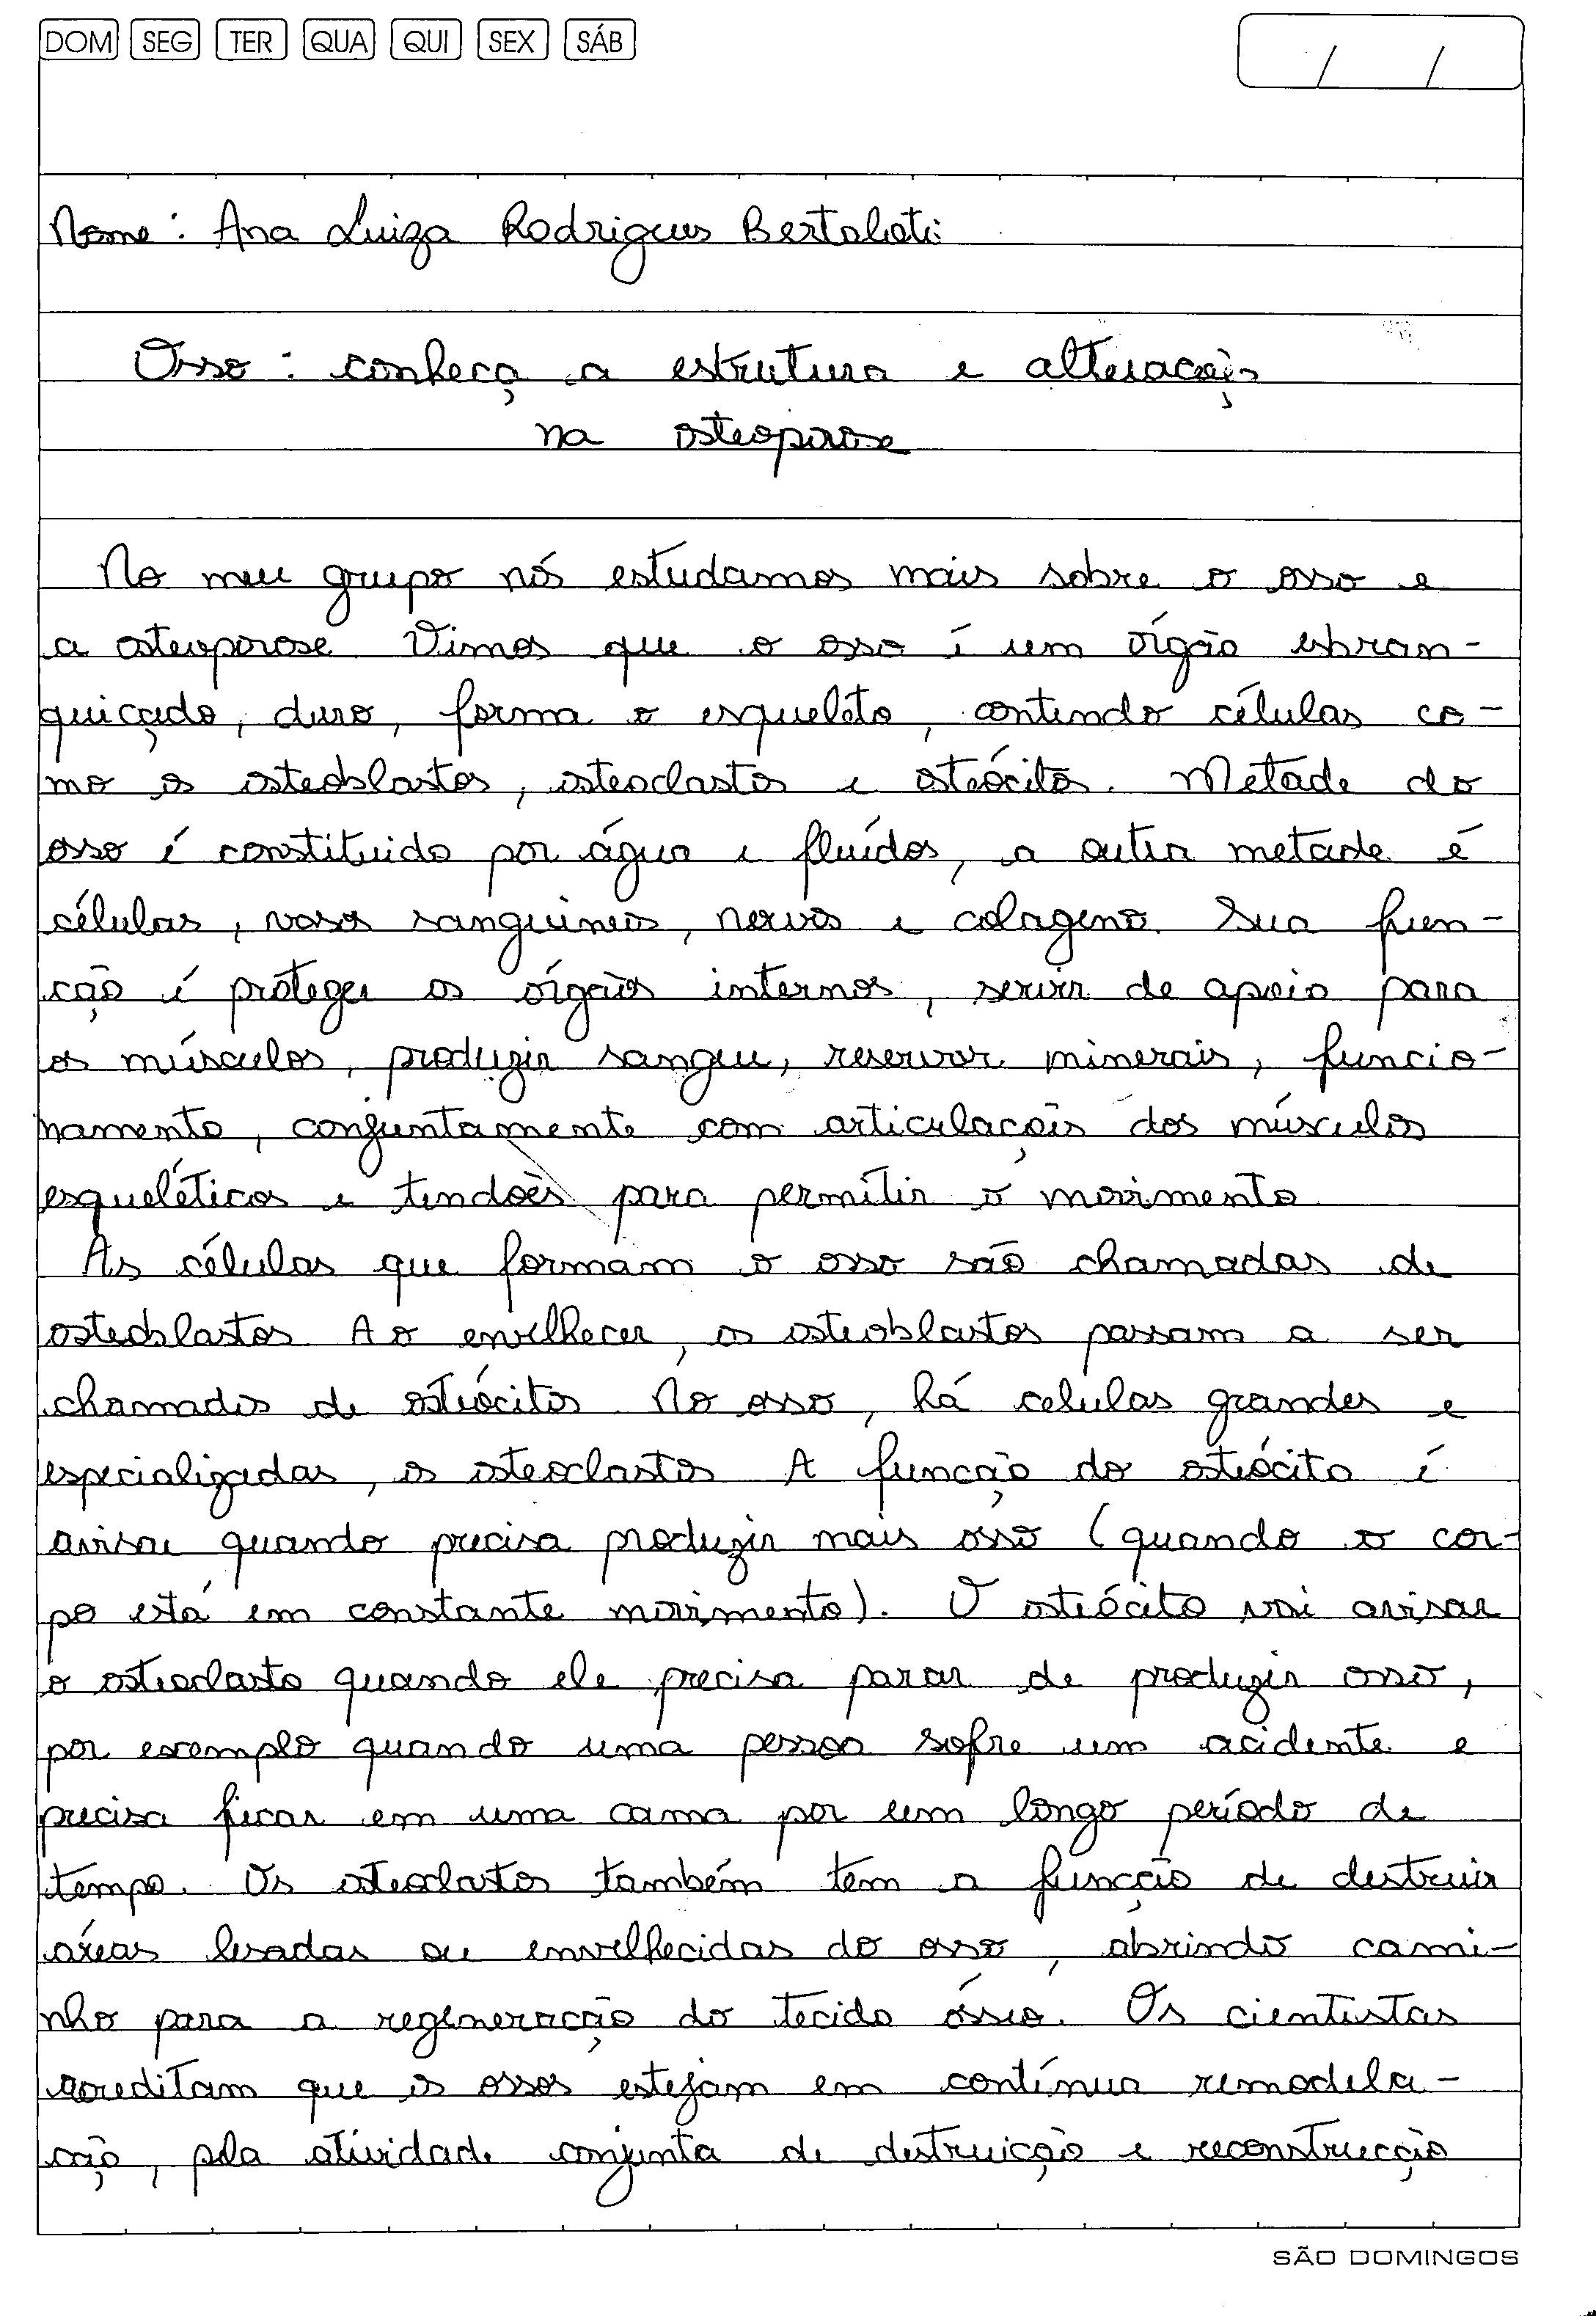 DOM SEG TER QUA QUI SEX SÁB
/ /
Nome: Ana Luiza Rodrigues
Osso: conheça a estrutura e alterações
na osteoporose
No meu grupo nós estudamos mais sobre o osso e
a osteoporose Vimos que o osso é um órgão esbran-
quiçado, duro, forma o esqueleto, contendo células co-
mo os osteoblastos, osteoclastos e osteócitos. Metade do
osso é constituido por água e fluídos, a outra metade é
células, vasos sanguineos, nervos e colageno. Sua fun-
ção é proteger os órgãos internos, servir de apoio para
os músculos, produzir sangue, reservar minerais, funcio-
namento, conjuntamente com articulações dos músculos
esqueléticos e tendões para permitir o movimento
As células que formam o osso são chamadas de
osteoblastos Ao envelhecer, os osteoblastos passam a ser
chamados de osteócitos. No osso, há celulas grandes e
especializadas, os osteoclastos A função do osteócito é
avisar quando precisa produzir mais osso (quando o cor-
po está em constante movimento). O osteócito vai avisar
o osteoclasto quando ele precisa parar de produzir osso,
por exemplo quando uma pessoa sofre um acidente e
precisa ficar em uma cama por um longo período de
tempo. Os osteoclastos também tem a função de destruir
áreas lesadas ou envelhecidas do osso, abrindo cami-
nho para a regeneração do tecido ósseo. Os cientistas
acreditam que os ossos estejam em contínua remodela-
ção, pela atividade conjunta de destruição e reconstrucção
SÃO DOMINGOS